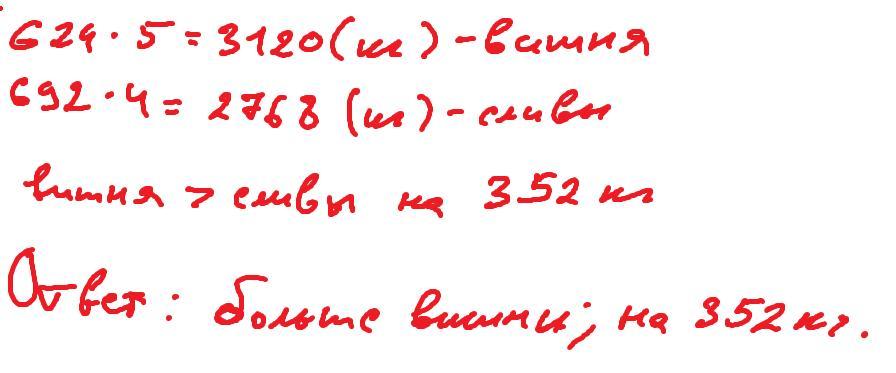 624 · 5 = 3120 (кг) - вишня
692 · 4 = 2768 (кг) - сливы
вишня > сливы на 352 кг
Ответ: больше вишни; на 352 кг.